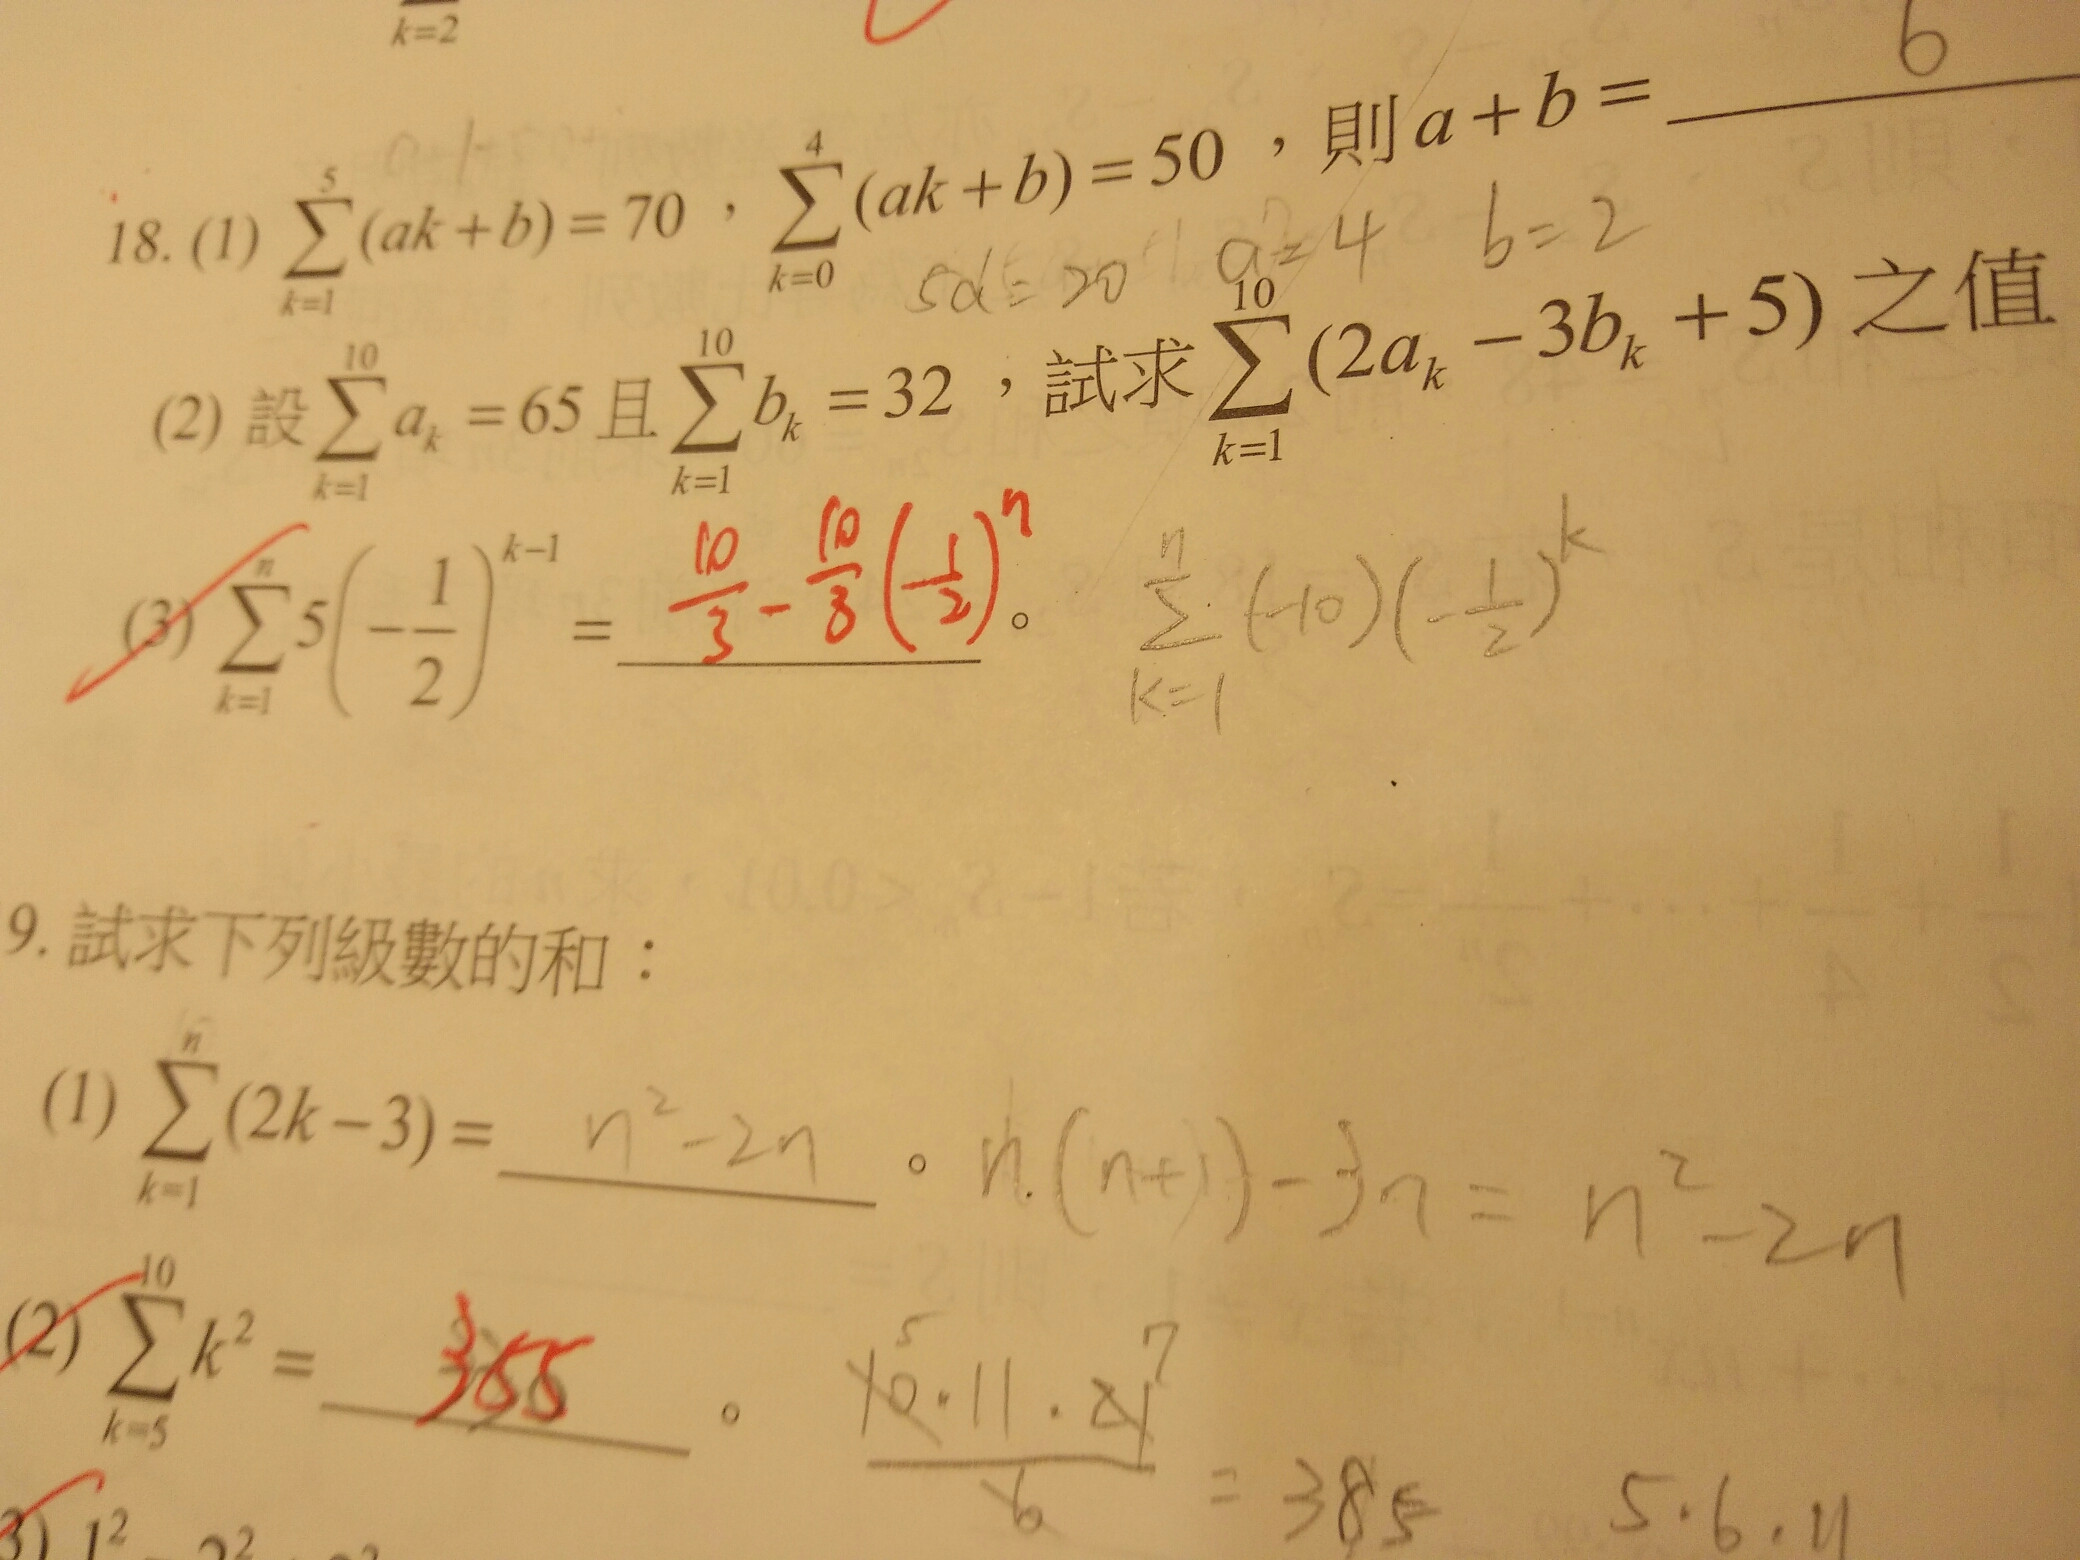 k=2
18. (1) \sum_{k=1}^{5}(ak+b)=70，\sum_{k=0}^{4}(ak+b)=50，則a+b= 6
5d=20 a=4 b=2
(2) 設\sum_{k=1}^{10}a_k=65且\sum_{k=1}^{10}b_k=32，試求\sum_{k=1}^{10}(2a_k-3b_k+5)之值
(3) \sum_{k=1}^{n}5(-\frac{1}{2})^{k-1}= \frac{10}{3}-\frac{10}{3}(-\frac{1}{2})^n。 \sum_{k=1}^{n}(-10)(-\frac{1}{2})^k
9. 試求下列級數的和：
(1) \sum_{k=1}^{n}(2k-3)= n^2-2n。 n.(n+1)-3n=n^2-2n
(2) \sum_{k=5}^{10}k^2= 355。 \frac{10·11·21}{6} 5 7 =385 5·6·11